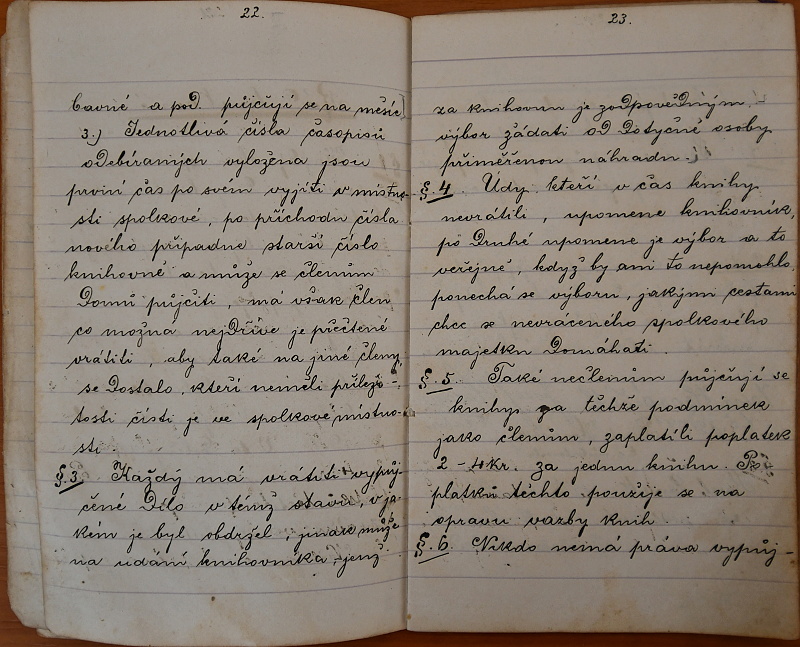 22.
bavné a pod. půjčují se na měsíc
3.) Jednotlivá čísla časopisů
odebíraných vyložena jsou
první čas po svém vyjíti v místno-
sti spolkové, po příchodu čísla
nového případne starší číslo
knihovně a může se členům
Domů půjčiti, má však člen
co možna nejdříve je přečtené
vrátiti, aby také na jiné členy
se dostalo, kteří neměli příleži-
tosti čísti je ve spolkové místno-
sti.
§.3. Každý má vrátiti vypůj-
čené dílo v témž stavu, v ja-
kém je byl obdržel, jinak může
na udání knihovníka, jenž
23.
za knihovnu je zodpovědným,
výbor žádati od dotyčné osoby
přiměřenou náhradu.
§.4. Údy, kteří v čas knihy
nevrátili, upomene knihovník,
po druhé upomene je výbor a to
veřejně, když by ani to nepomohlo,
ponechá se výboru, jakými cestami
chce se nevráceného spolkového
majetku domáhati.
§.5. Také nečlenům půjčují se
knihy za těchže podmínek
jako členům, zaplatíli poplatek
2-4Kr. za jednu knihu. Po-
platků těchto použije se na
opravu vazby knih.
§.6. Nikdo nemá práva vypůj-